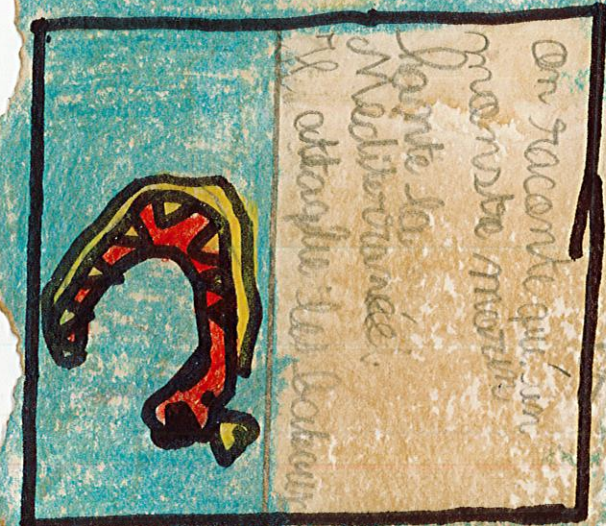 on raconte qu'un
monstre marin
hante la
Mediterranée.
Il attaque les bateaux